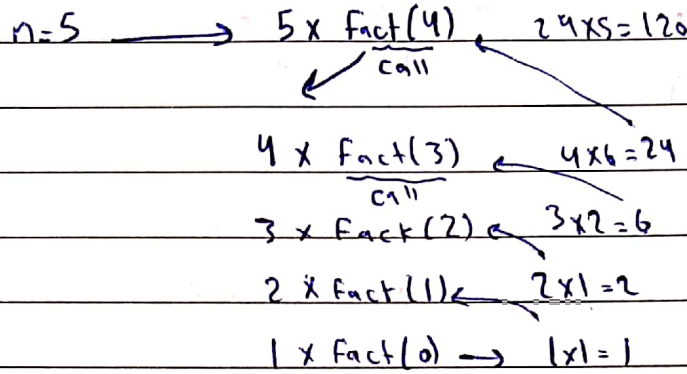 n=5 → 5 x fact(4) 24x5=120
call
4 x fact(3) 4x6=24
call
3 x fact(2) 3x2=6
2 x fact(1) 2x1=2
1 x fact(0) → 1x1=1